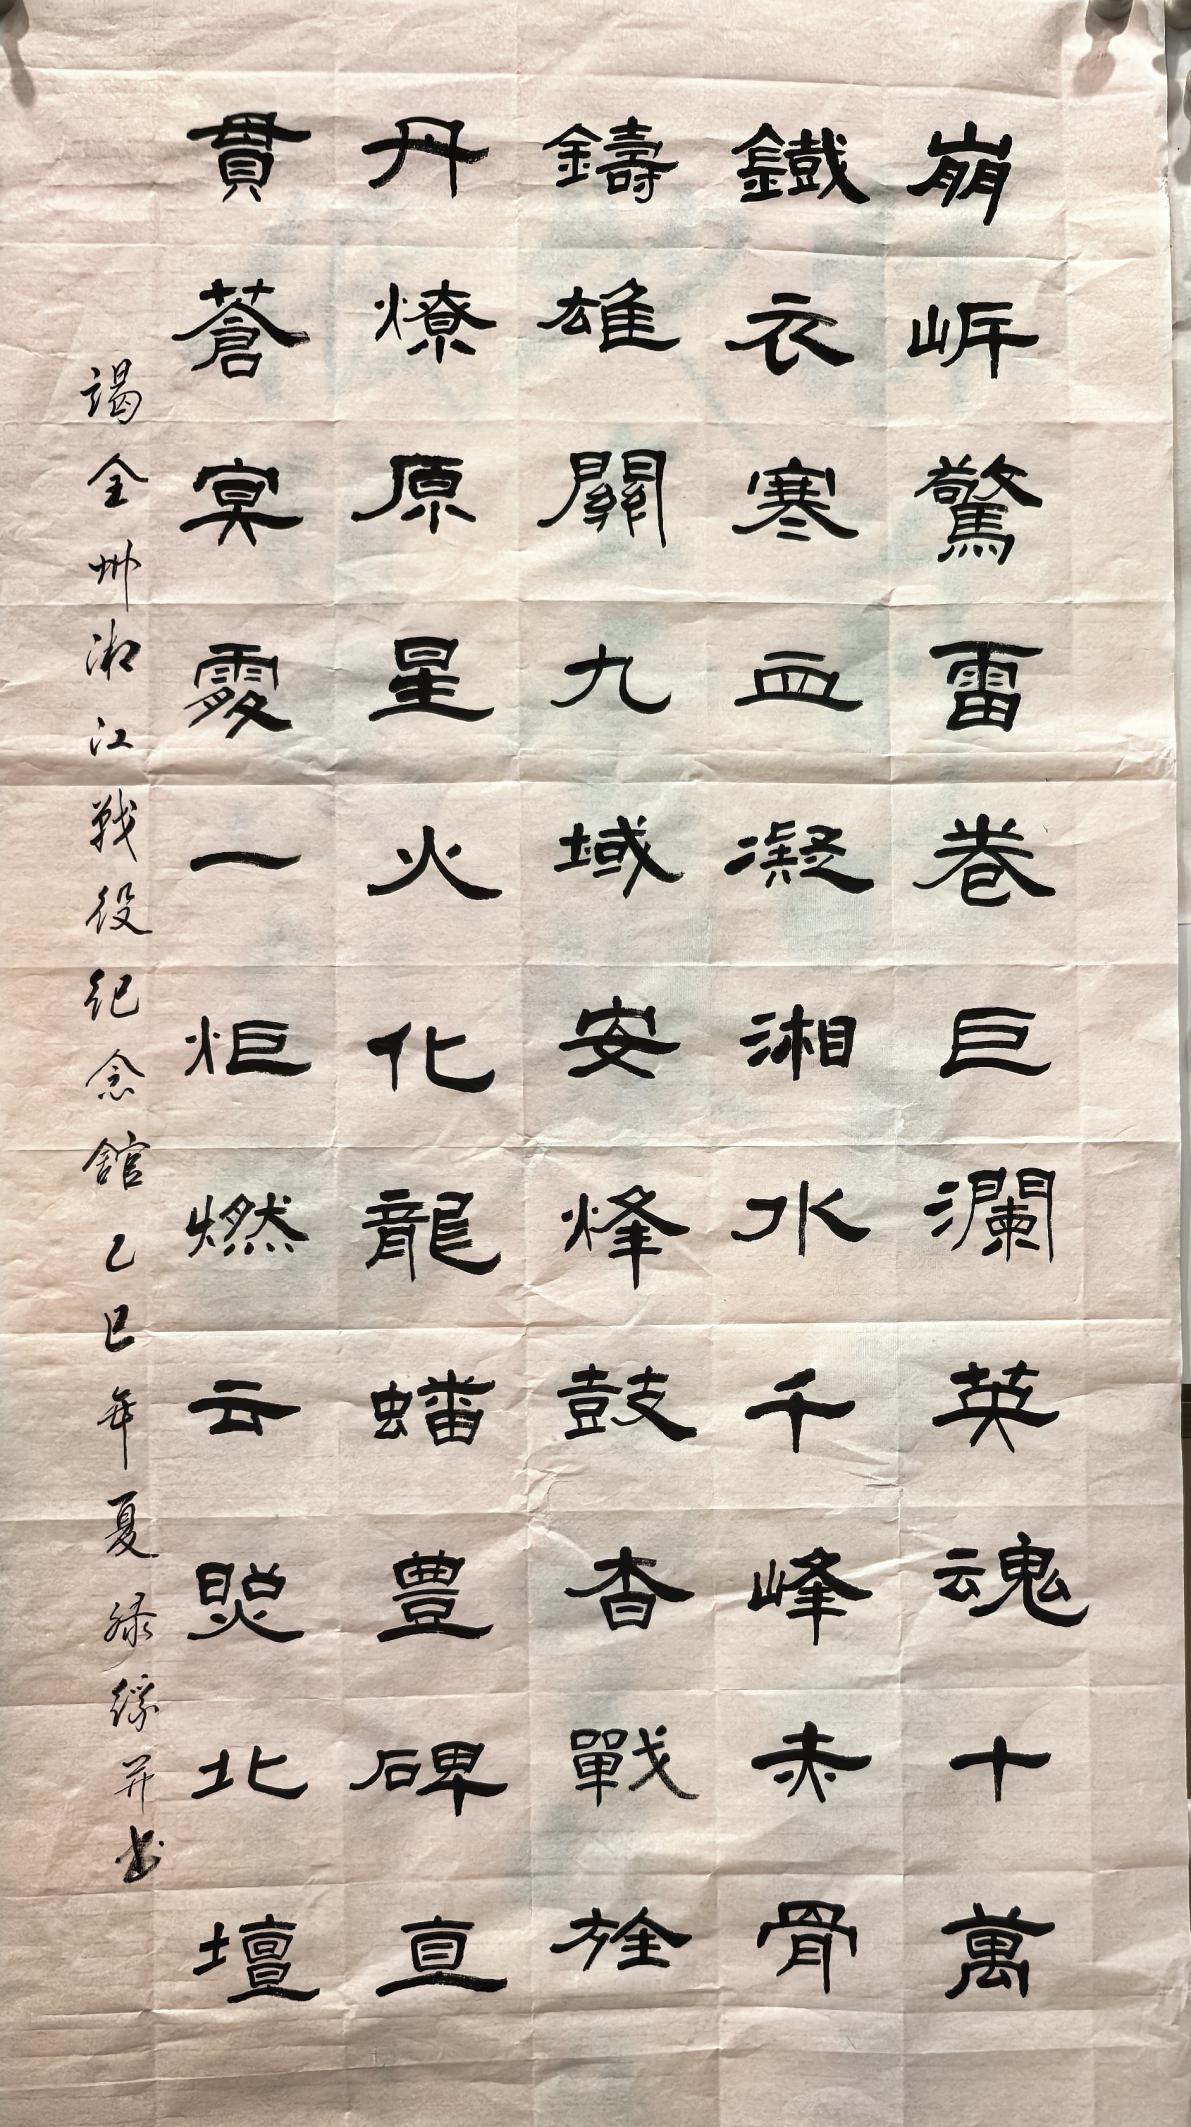 崩岸驚雷卷巨瀾英魂十萬
鐵衣寒血凝湘水千峰赤骨
鑄雄關九域安烽鼓杳戰旌
丹燎原星火化龍蟠豊碑直
貫蒼冥霞一炬燃云照北壇
謁全州湘江戦役纪念館乙巳年夏并书